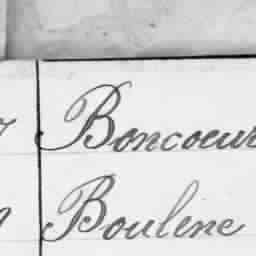 Boncoeur
Boulene